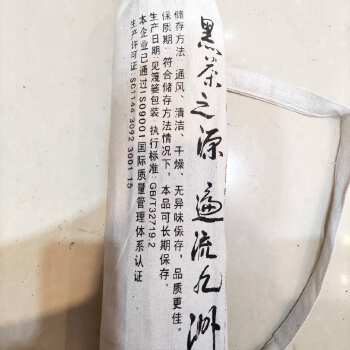 黑茶之源 遍流九洲
储存方法：通风、清洁、干燥、无异味保存，品质更佳。
保质期：符合储存方法情况下，本品可长期保存。
生产日期：见篾篓包装 执行标准：GB/T32719.2
本企业已通过ISO9001国际质量管理体系认证
生产许可证：SC1144 3092 3001 15